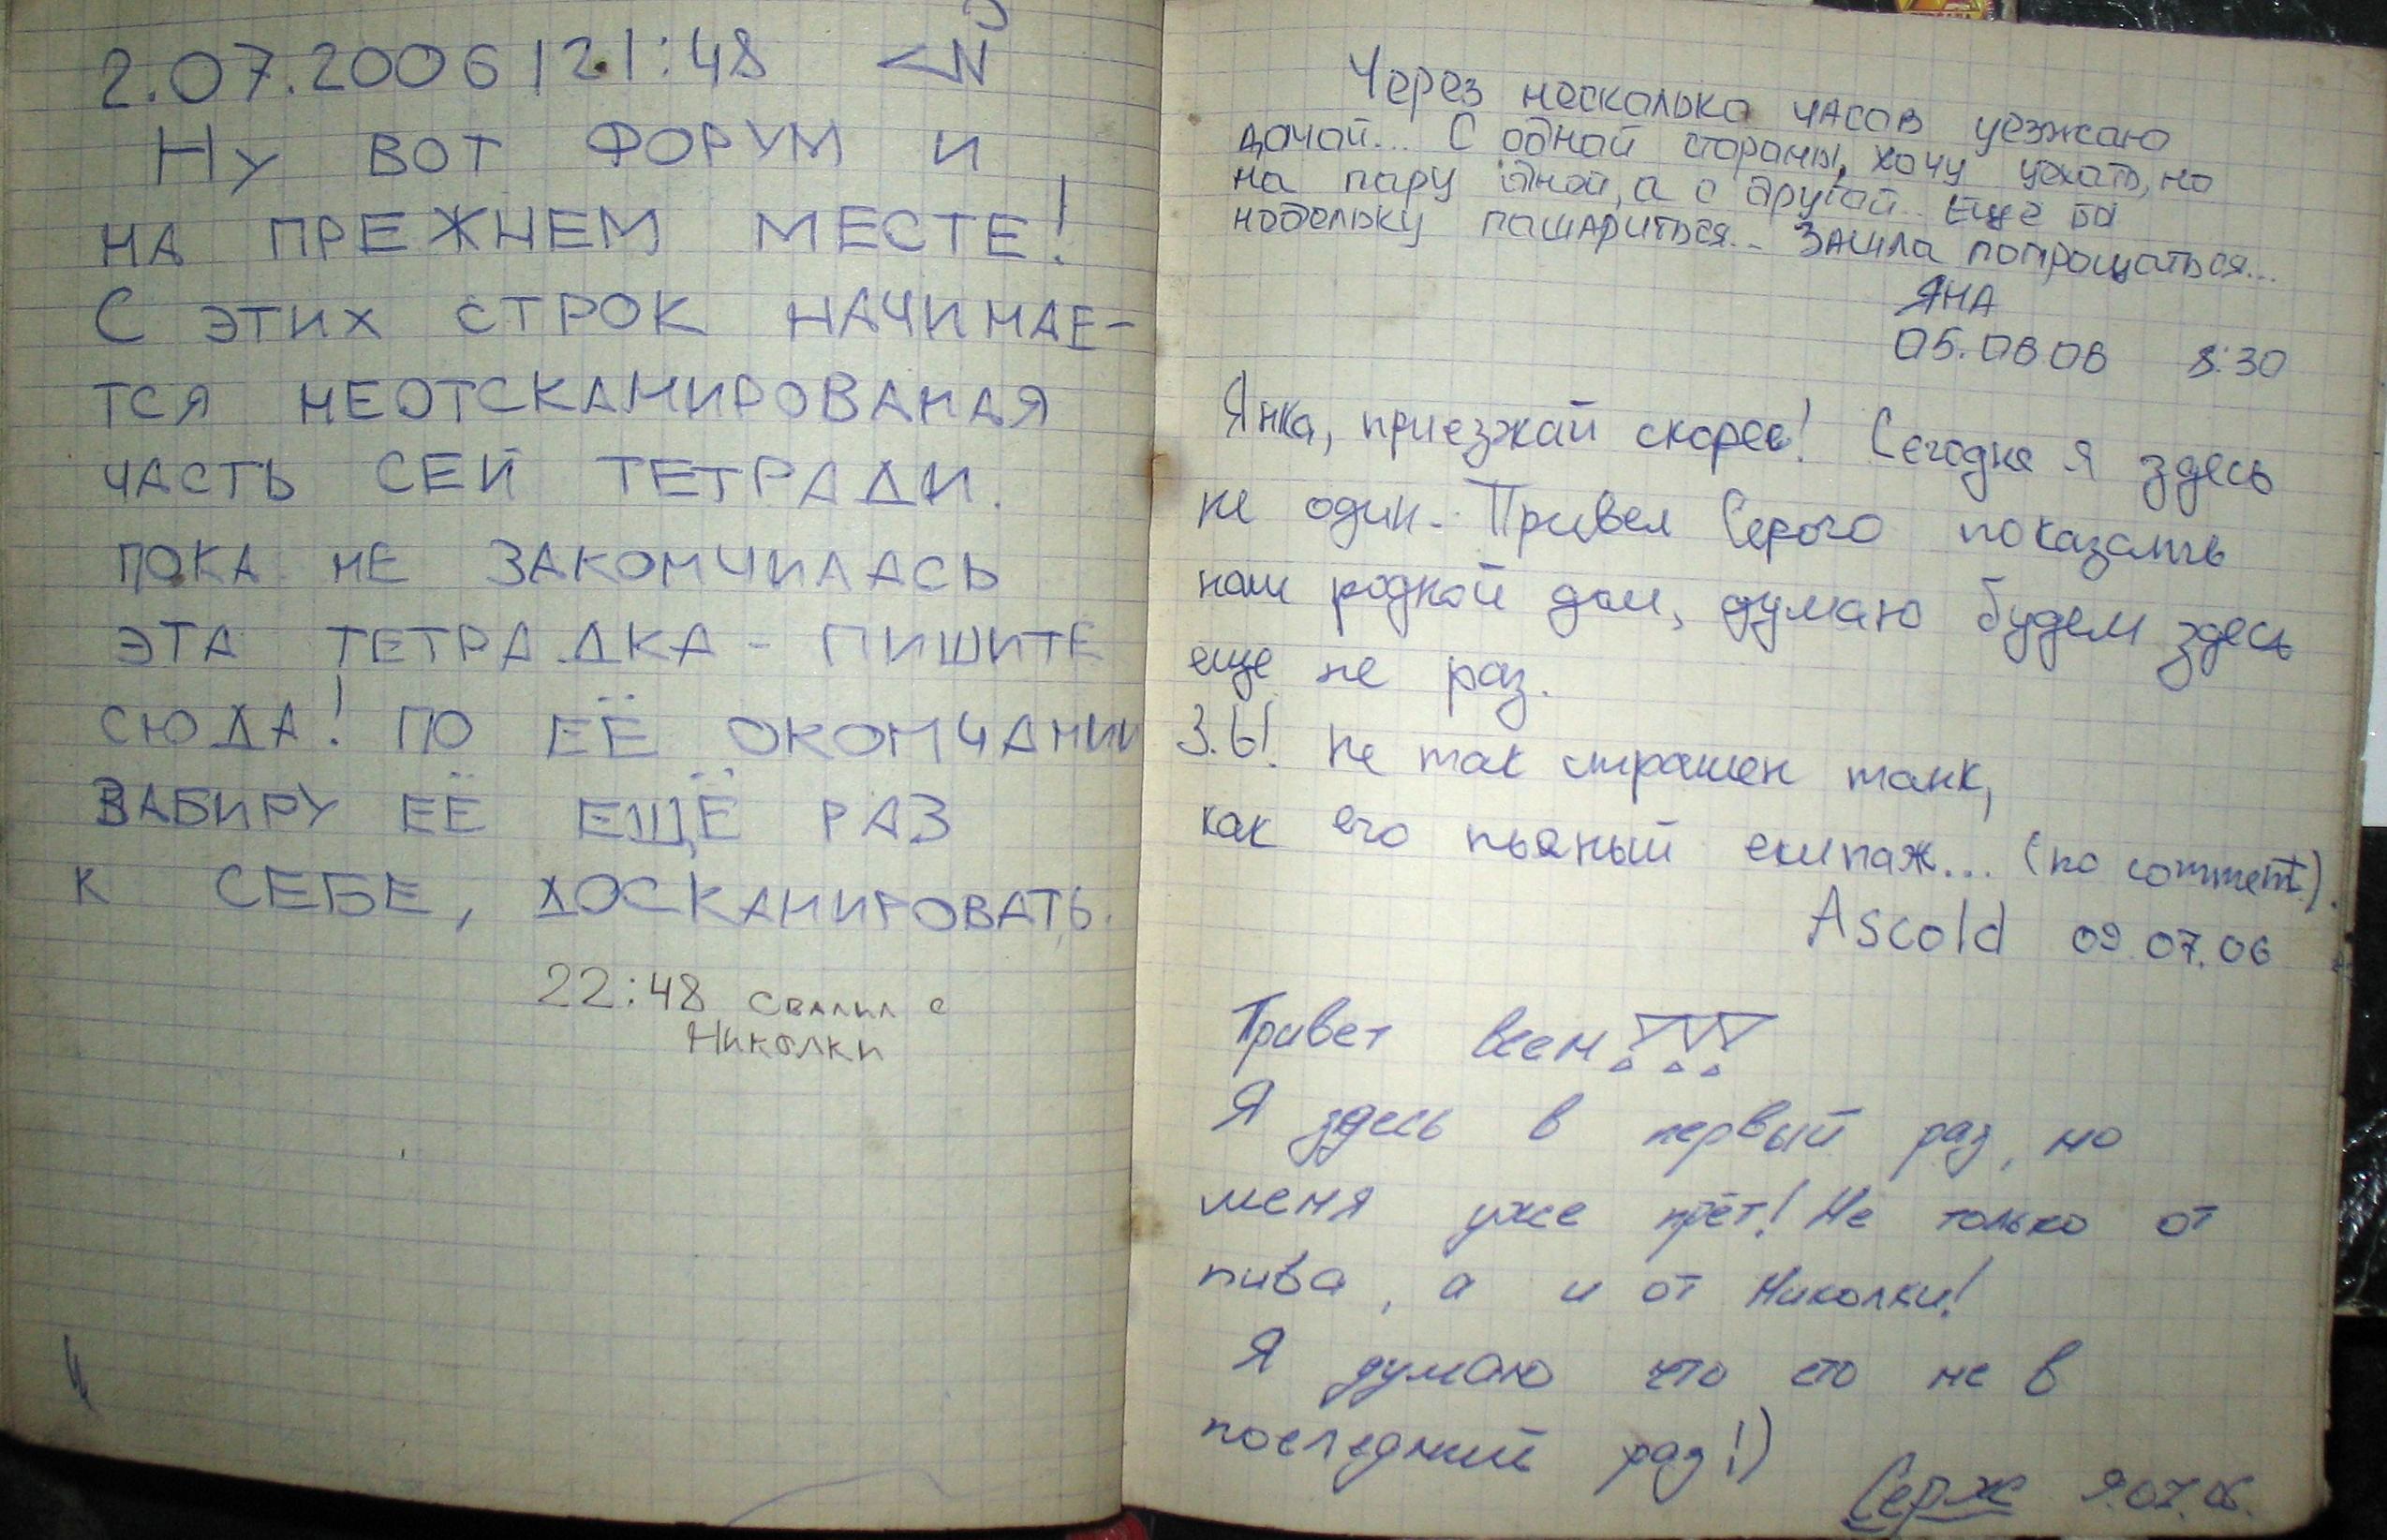 2.07.2006 | 21:48
Ну вот форум и
на прежнем месте!
С этих строк начинае-
тся неотсканированая
часть сей тетради.
Пока не закончилась
эта тетрадка - пишите
сюда! По её окончании
вабиру её ещё раз
к себе, досканировать.
22:48 свалил с
Николки
Через несколько часов уезжаю
дамой... С одной стораны, хочу уехать, но
на пару дней, а с другай.. Ещё бы
недельку пашариться... Зашла попрощаться...
Яна
05.08 06 8:30
Янка, приезжай скорее! Сегодня я здесь
не один. Привел Серого показать
наш родной дом, думаю будем здесь
еще не раз.
З.Ы! Не так страшен танк,
как его пьяный екипаж... (no comment).
Ascold 09.07.06
Привет всем!!!
Я здесь в первый раз, но
меня уже прёт! Не только от
пива, а и от Николки!
Я думаю что ето не в
последний раз!)
Серж 9.07.06.